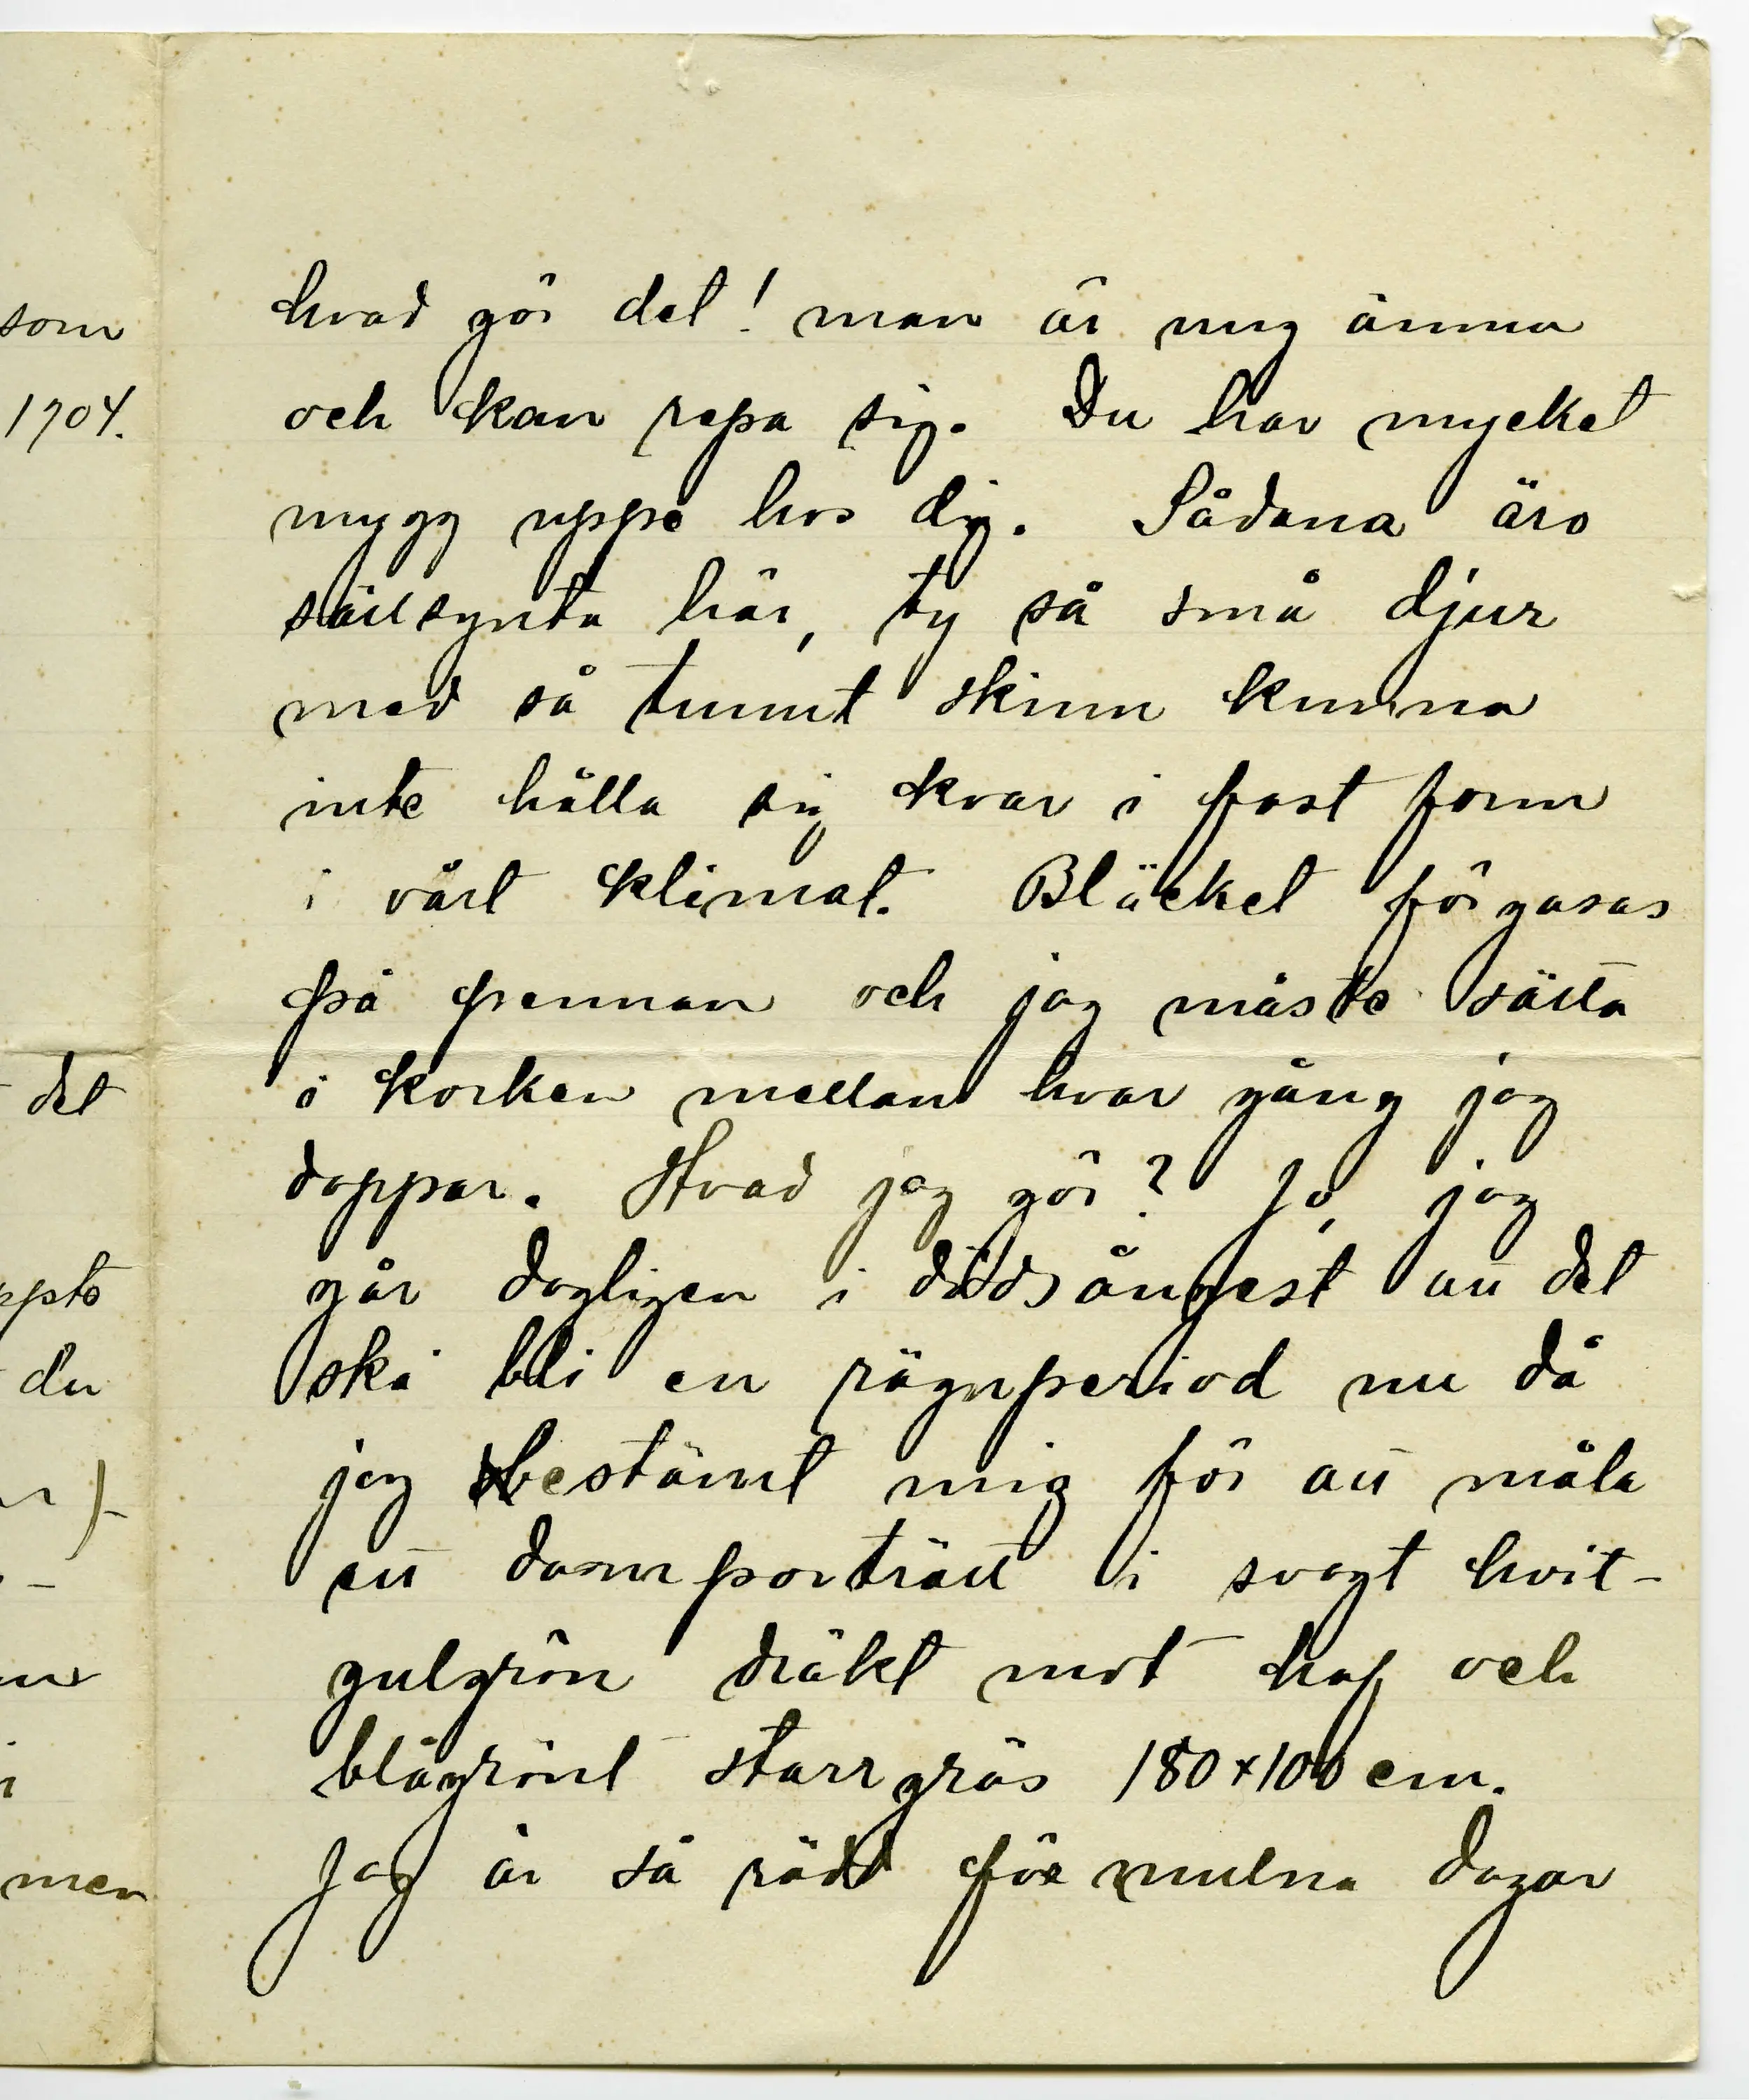 som
1904.
det
du
men
hvad gör det! man är ung ännu
och kan repa sig. Du har mycket
mygg uppe hos dig. Sådana äro
sällsynta här, ty så små djur
med så tunnt skinn kunna
inte hålla sig kvar i fast form
i vårt klimat. Bläcket förgasas
på pennan och jag måste sätta
i korken mellan hvar gång jag
doppar. Hvad jag gör? Jo, jag
går dagligen i dödsångest att det
ska bli en rägnperiod nu då
jag bestämt mig för att måla
ett damporträtt i svagt hvit-
gulgrön dräkt mot haf och
blågrönt starrgräs 180x100 cm.
Jag är så rädd för mulna dagar